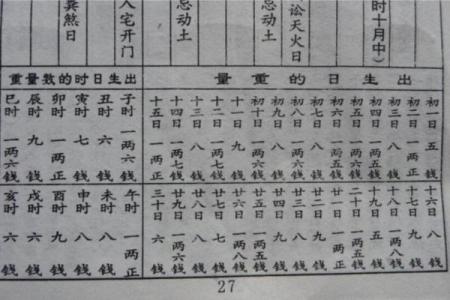 时十月中）
讼天火日
忌动土
忌动土
入宅开门
粪煞日
出生日的重量
初一日 五錢
初二日 一两正
初三日 八錢
初四日 一两五錢
初五日 一两六錢
初六日 一两五錢
初七日 八錢
初八日 一两六錢
初九日 八錢
初十日 一两六錢
十一日 九錢
十二日 一两七錢
十三日 八錢
十四日 一两七錢
十五日 一两正
十六日 八錢
十七日 九錢
十八日 一两八錢
十九日 五錢
二十日 一两五錢
廿一日 一两正
廿二日 九錢
廿三日 八錢
廿四日 九錢
廿五日 一两五錢
廿六日 一两八錢
廿七日 七錢
廿八日 八錢
廿九日 一两六錢
三十日 六錢
出生日时的数量重
子时 一两六錢
丑时 六錢
寅时 七錢
卯时 一两正
辰时 九錢
巳时 一两六錢
午时 一两正
未时 八錢
申时 八錢
酉时 九錢
戌时 六錢
亥时 六錢
27